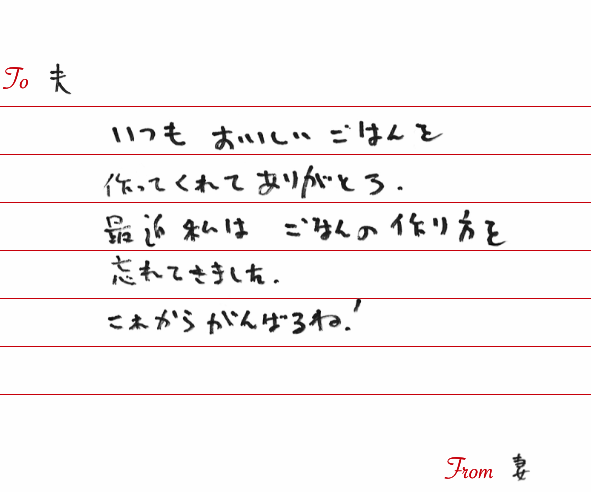 To 夫
いつも おいしい ごはんを
作ってくれて ありがとう.
最近 私は ごはんの 作り方を
忘れてきました.
これから がんばろうね!
From 妻